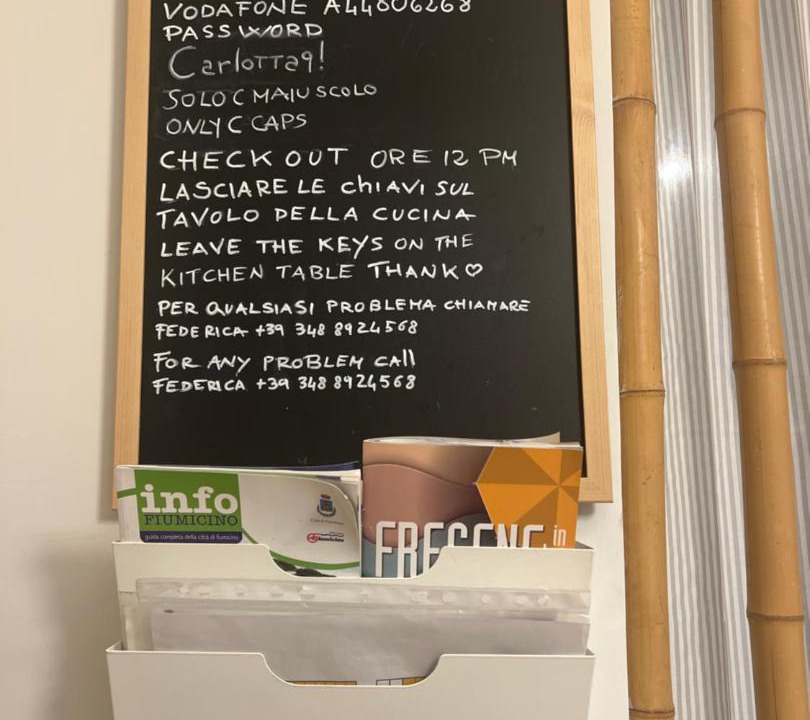 VODAFONE A44806268
PASSWORD
Carlotta9!
SOLO C MAIUSCOLO
ONLY C CAPS
CHECK OUT ORE 12 PM
LASCIARE LE chiAVi SUL
TAVOLO DELLA CUCINA
LEAVE THE KEYS ON THE
KITCHEN TABLE THANK♡
PER QUALSIASI PROBLEMA CHIAMARE
FEDERICA +39 348 8924568
FOR ANY PROBLEM CAll
FEDERICA +39 348 8924568
info
FIUMICINO
guida completa della città di fiumicino
FREGENE.in